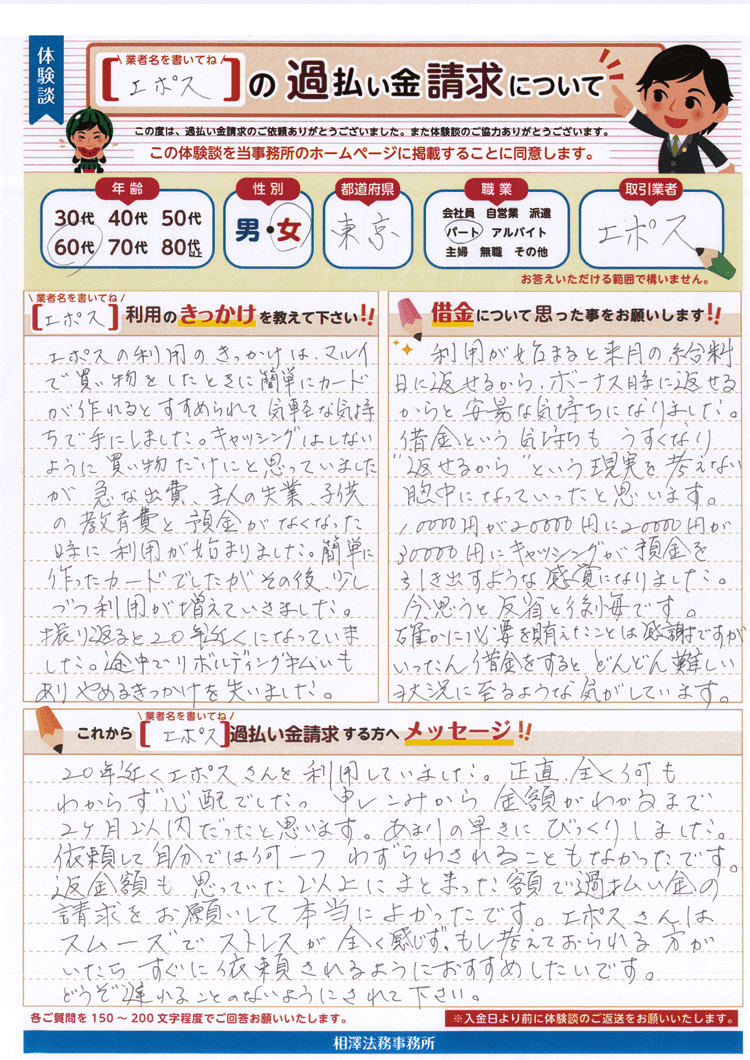 体験談
業者名を書いてね
[エポス]の過払い金請求について
この度は、過払い金請求のご依頼ありがとうございました。また体験談のご協力ありがとうございます。
この体験談を当事務所のホームページに掲載することに同意します。
年齢
30代 40代 50代
60代 70代 80代以上
性別
男・女
都道府県
東京
職業
会社員 自営業 派遣
パート アルバイト
主婦 無職 その他
取引業者
エポス
お答えいただける範囲で構いません。
業者名を書いてね
[エポス]利用のきっかけを教えて下さい!!
エポスの利用のきっかけは、マルイ
で買い物をしたときに簡単にカード
が作れるとすすめられて気軽な気持
ちで手にしました。キャッシングはしない
ように買い物だけにと思っていました
が 急な出費、主人の失業、子供
の教育費と預金がなくなった
時に利用が始まりました。簡単に
作ったカードでしたがその後、少し
づつ利用が増えていきました。
振り返ると20年近くになっていま
した。途中でリボルディング払いも
ありやめるきっかけを失いました。
借金について思った事をお願いします!!
利用が始まると来月の給料
日に返せるから、ボーナス時に返せる
からと安易な気持ちになりました。
借金という気持ちもうすくなり
"返せるから"という現実を考えない
胸中になっていったと思います。
10000円が20000円に20000円が
30000円にキャッシングが預金を
引き出すような感覚になりました。
今思うと反省と後悔です。
確かに必要を賄えたことは感謝ですが
いったん借金をするとどんどん難しい
状況に至るような気がしています。
業者名を書いてね
これから[エポス]過払い金請求する方へメッセージ!!
20年近くエポスさんを利用していました。正直、全く何も
わからず心配でした。申しこみから金額がわかるまで
2ヶ月以内だったと思います。あまりの早さにびっくりしました。
依頼して自分では何一つわずらわされることもなかったです。
返金額も思っていた以上にまとまった額で過払い金の
請求をお願いして本当によかったです。エポスさんは
スムーズでストレスが全く感じず、もし考えておられる方が
いたらすぐに依頼されるようにおすすめしたいです。
どうぞ遅れることのないようにされて下さい。
各ご質問を150～200文字程度でご回答お願いいたします。
※入金日より前に体験談のご返送をお願いいたします。
相澤法務事務所